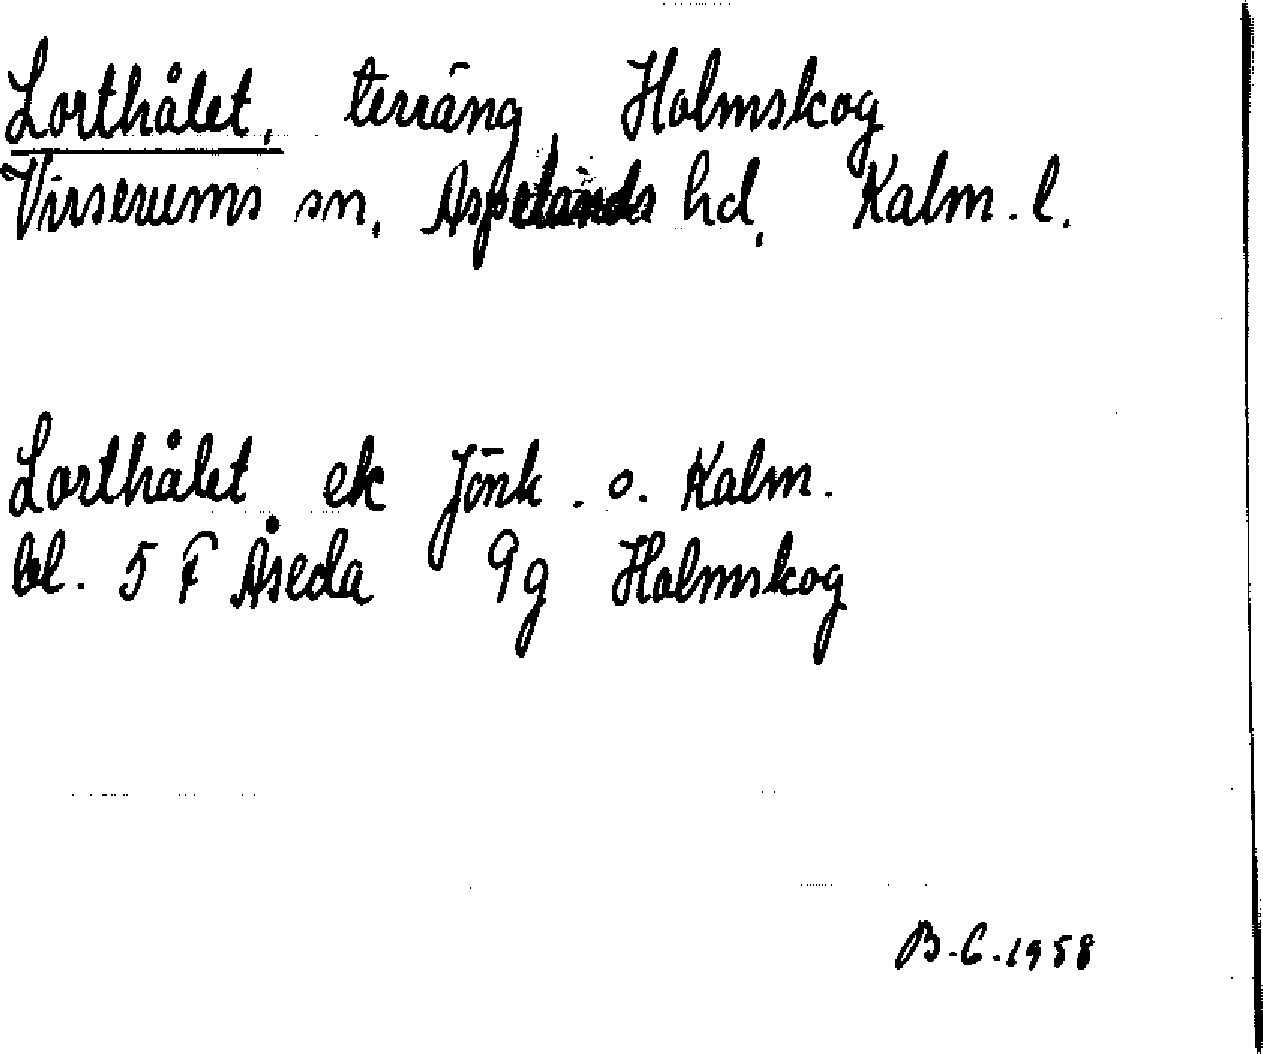 Lorthålet, terräng, Holmskog
Virserums sn, Aspelands hd, Kalm. l.
Lorthålet ek Jönk. o. Kalm.
bl. 5 F Åseda 9g Holmskog
B-C.1958